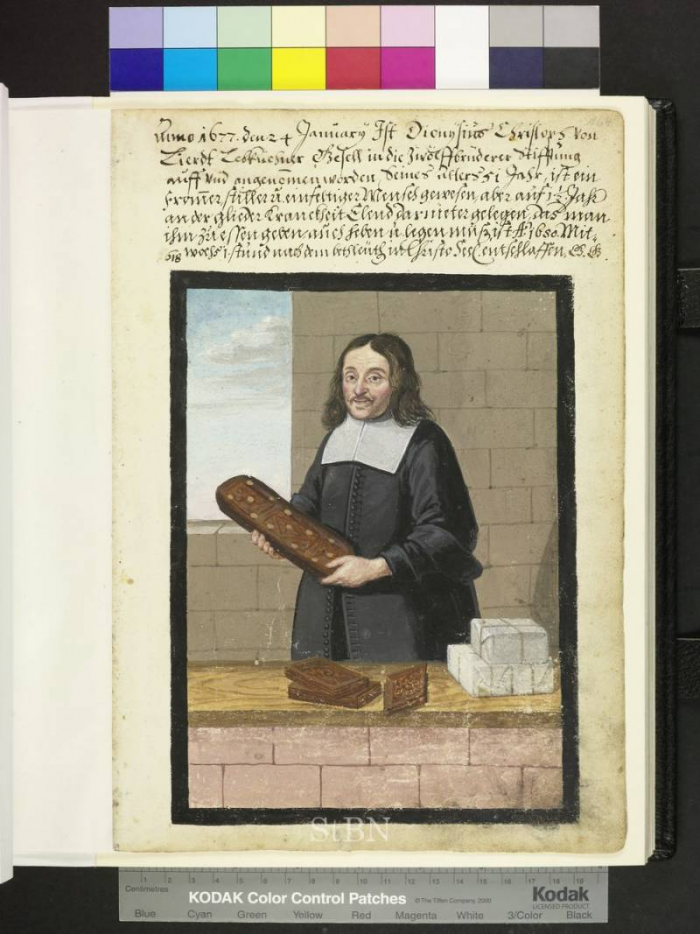 Anno 1677. den 24 January Ist Dionysius Christoph Von
Lierdt Lebkuchner Gesell in die Zwölffbrüderer Stifftung
auff und angenommen worden seines alters 51 Jahr, ist ein
frommer stiller u. einfeltiger Mensch gewesen, aber auf 1½ Jahr
an der glieder Kranckheit Elend darnieter gelegen, das man
ihm zu essen geben, auch heben u. legen mus, ist A° 1680. Mit-
wochs in Christo entschlaffen,
StBN
Centimetres 1 2 3 4 5 6 7 8 9 10 11 12 13 14 15 16 17 18 19
KODAK Color Control Patches © The Tiffen Company, 2000 Kodak
LICENSED PRODUCT
Blue Cyan Green Yellow Red Magenta White 3/Color Black